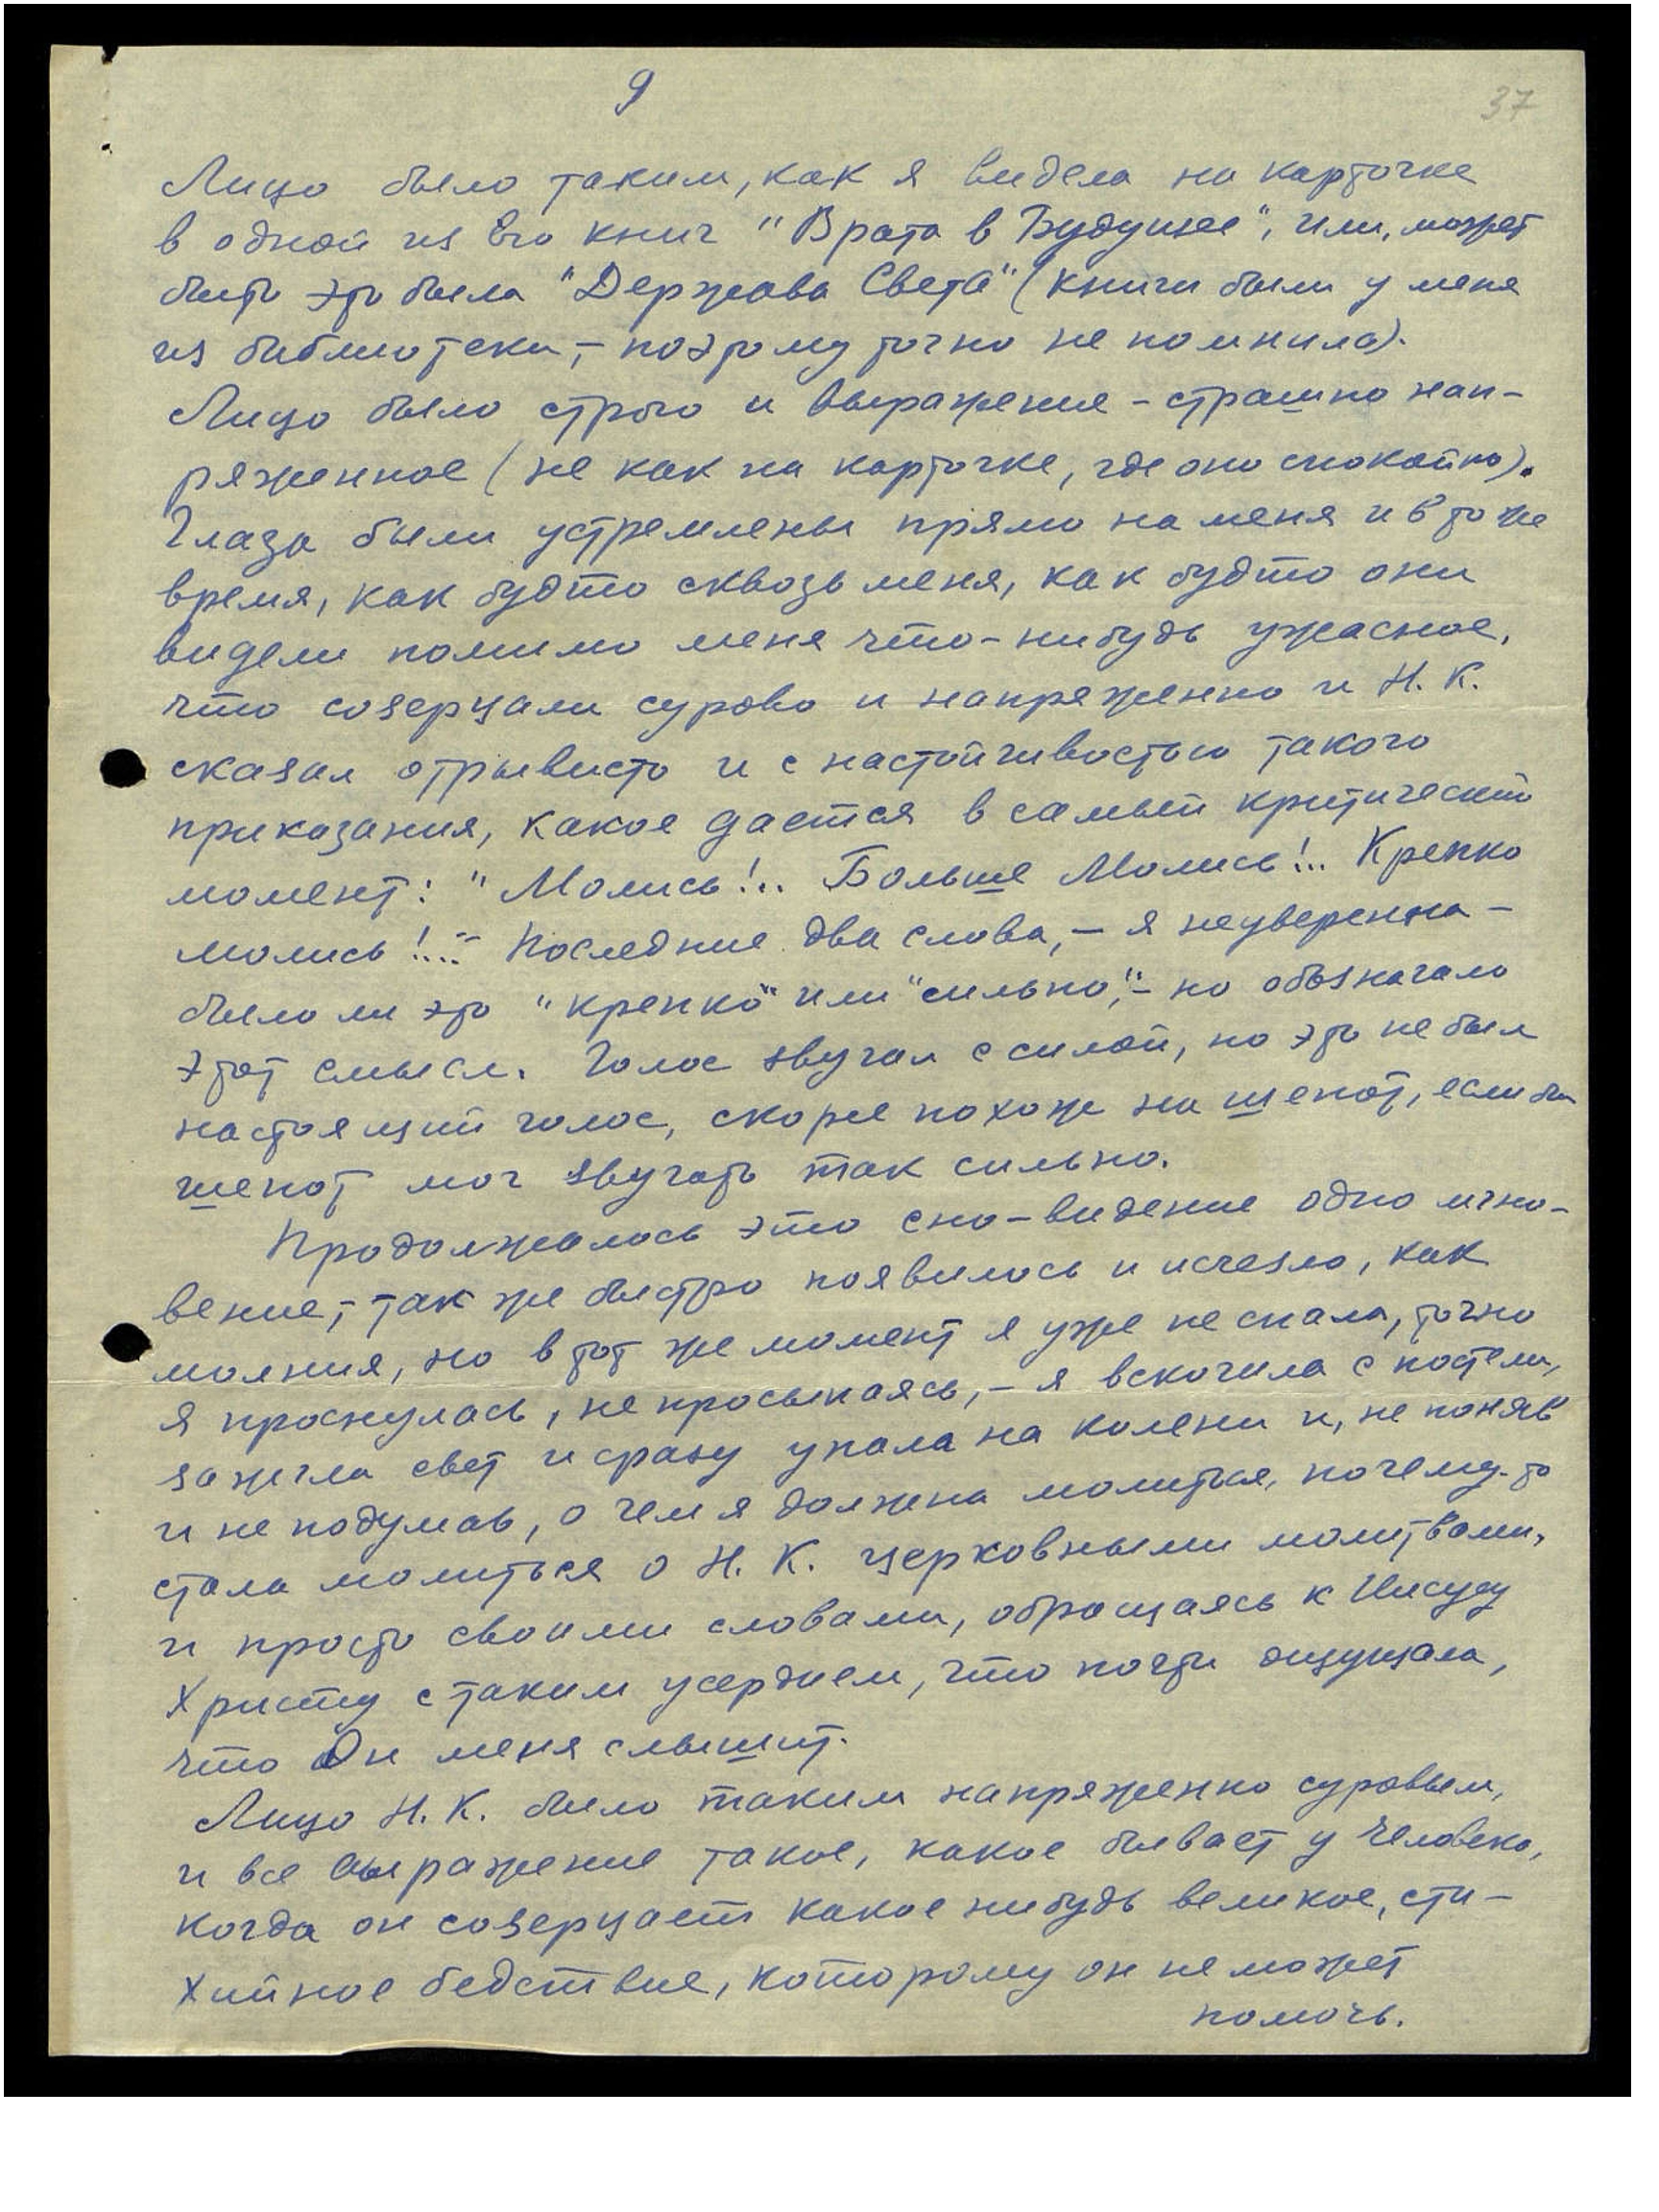 9
37
Лицо было таким, как я видела на карточке
в одной из Его книг "Врата в Будущее", или, может
быть это была "Держава Света" (книги были у меня
из библиотеки, – поэтому точно не помнила).
Лицо было строго и выражение – страшно нап-
ряженное (не как на карточке, где оно спокойно).
Глаза были устремлены прямо на меня и в то же
время, как будто сквозь меня, как будто они
видели помимо меня что-нибудь ужасное,
что созерцали сурово и напряженно и Н. К.
сказал отрывисто и с настойчивостью такого
приказания, какое дается в самый критический
момент: "Молись!.. Больше Молись!.. Крепко
молись!.." Последние два слова, – я не уверенна –
было ли это "крепко" или "сильно", – но обозначало
этот смысл. Голос звучал с силой, но это не был
настоящий голос, скорее похож на шепот, если бы
шепот мог звучать так сильно.
Продолжалось это сно-видение одно мгно-
вение, – так же быстро появилось и исчезло, как
молния, но в тот же момент я уже не спала, точно
я проснулась, не просыпаясь, – я вскочила с постели,
зажгла свет и сразу упала на колени и, не поняв
и не подумав, о чем я должна молиться, почему-то
стала молиться о Н. К. церковными молитвами,
и просто своими словами, обращаясь к Иисусу
Христу с таким усердием, что почти ощущала,
что Он меня слышит.
Лицо Н. К. было таким напряженно суровым,
и все выражение такое, какое бывает у человека,
когда он созерцает какое нибудь великое, сти-
хийное бедствие, которому он не может
помочь.